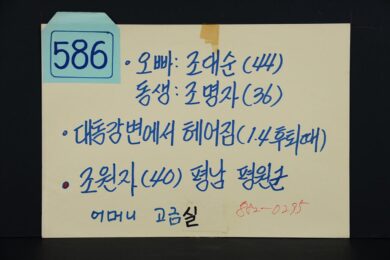 586
• 오빠: 조대순 (44)
동생: 조명자 (36)
• 대동강변에서 헤어짐 (1.4 후퇴때)
• 조원자 (40) 평남 평원군
어머니 고금실
882-0295